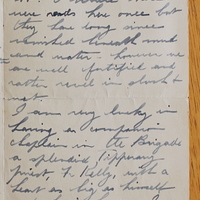 were roads here once but
they have long since
vanished beneath mud
and water - however we
are well fortified and
rather revel in
wet.
I am very lucky in
having as companion
chaplain in the Brigade
a splendid Tipperary
priest, Fr Kelly, with a
heart as big as himself